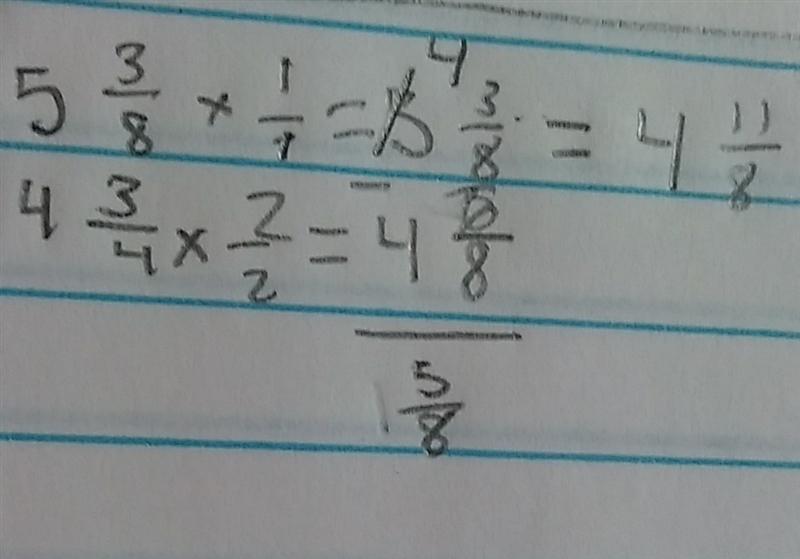 5 3/8 × 1/1 = 5 4 3/8 = 4 11/8
4 3/4 × 2/2 = - 4 6/8
5/8